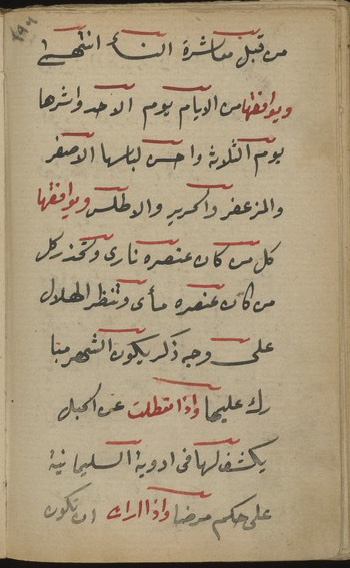 من قبل مباشرة النسأ انتهى
ويوافقها من الايام يوم الاحد واشرها
يوم الثلاثه واحسن لباسها الاصفر
والمزعفر والحرير والاطلس ويوافقها
كل من كان عنصره نارى وتحذر كل
من كان عنصره مأى وتنظر الهلال
على وجه ذكر يكون الشهر مبا
رك عليها واذا تعطلت عن الحبل
يكشف لها فى ادوية السليمانية
على حكم مرضها واذا ارادت ان تكون